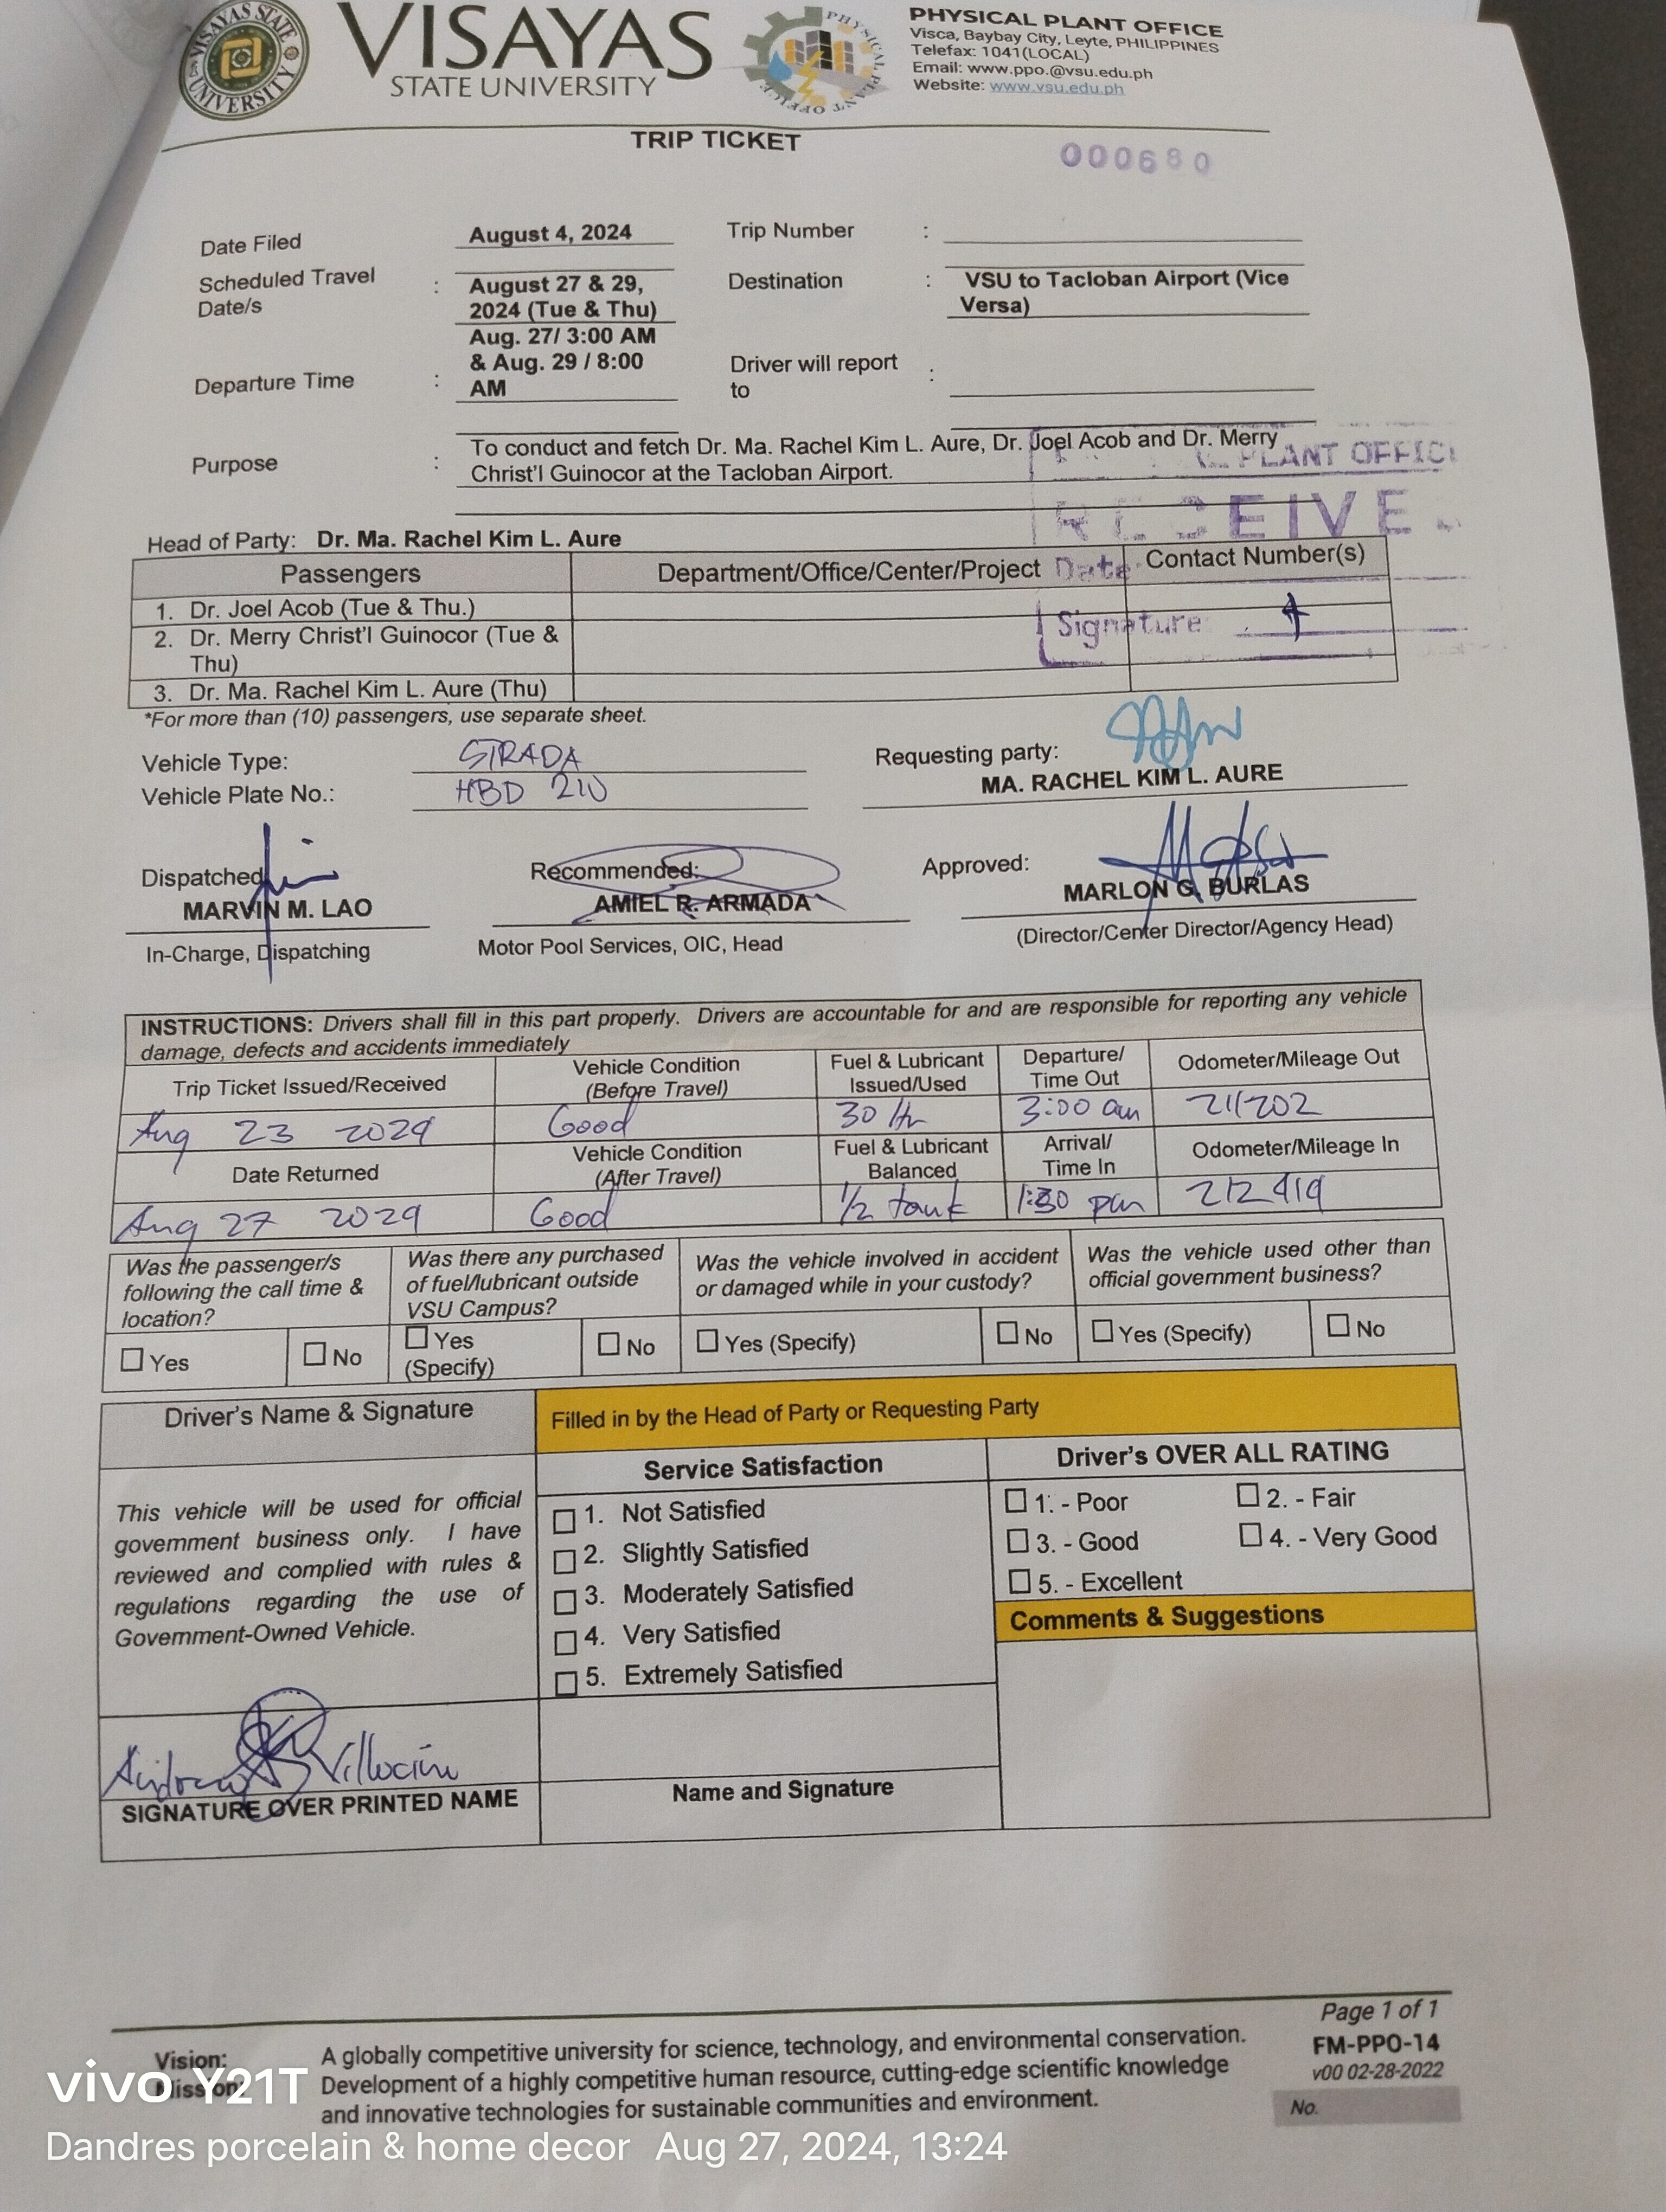 VISAYAS STATE UNIVERSITY
VISAYAS
STATE UNIVERSITY
PHYSICAL PLANT OFFICE
PHYSICAL PLANT OFFICE
Visca, Baybay City, Leyte, PHILIPPINES
Telefax: 1041(LOCAL)
Email: www.ppo.@vsu.edu.ph
Website: www.vsu.edu.ph
TRIP TICKET
000680
Date Filed August 4, 2024 Trip Number :
Scheduled Travel Date/s : August 27 & 29, 2024 (Tue & Thu) Destination : VSU to Tacloban Airport (Vice Versa)
Departure Time : Aug. 27/ 3:00 AM & Aug. 29 / 8:00 AM Driver will report to :
Purpose : To conduct and fetch Dr. Ma. Rachel Kim L. Aure, Dr. Joel Acob and Dr. Merry
Christ'l Guinocor at the Tacloban Airport.
PLANT OFFIC
Head of Party: Dr. Ma. Rachel Kim L. Aure
Passengers Department/Office/Center/Project Date Contact Number(s)
1. Dr. Joel Acob (Tue & Thu.)
Signature
2. Dr. Merry Christ'l Guinocor (Tue &
Thu)
3. Dr. Ma. Rachel Kim L. Aure (Thu)
*For more than (10) passengers, use separate sheet.
Vehicle Type: STRADA
Vehicle Plate No.: HBD
Requesting party:
MA. RACHEL KIM L. AURE
Dispatched
MARVIN M. LAO
In-Charge, Dispatching
Recommended:
AMIEL R. ARMADA
Motor Pool Services, OIC, Head
Approved:
MARLON G. BURLAS
(Director/Center Director/Agency Head)
INSTRUCTIONS: Drivers shall fill in this part properly. Drivers are accountable for and are responsible for reporting any vehicle
damage, defects and accidents immediately
Trip Ticket Issued/Received Vehicle Condition (Before Travel) Fuel & Lubricant Issued/Used Departure/ Time Out Odometer/Mileage Out
Aug 23 2024 Good 30 3:00 am
Date Returned Vehicle Condition (After Travel) Fuel & Lubricant Balanced Arrival/ Time In Odometer/Mileage In
Aug 27 2024 Good 1/2 tank 1:30 pm 212419
Was the passenger/s following the call time & location?
Was there any purchased of fuel/lubricant outside VSU Campus?
Was the vehicle involved in accident or damaged while in your custody?
Was the vehicle used other than official government business?
☐ Yes ☐ No ☐ Yes (Specify) ☐ No ☐ Yes (Specify) ☐ No ☐ Yes (Specify) ☐ No
Driver's Name & Signature
Filled in by the Head of Party or Requesting Party
This vehicle will be used for official
government business only. I have
reviewed and complied with rules &
regulations regarding the use of
Government-Owned Vehicle.
SIGNATURE OVER PRINTED NAME
Service Satisfaction
☐ 1. Not Satisfied
☐ 2. Slightly Satisfied
☐ 3. Moderately Satisfied
☐ 4. Very Satisfied
☐ 5. Extremely Satisfied
Name and Signature
Driver's OVER ALL RATING
☐ 1. - Poor ☐ 2. - Fair
☐ 3. - Good ☐ 4. - Very Good
☐ 5. - Excellent
Comments & Suggestions
Page 1 of 1
FM-PPO-14
v00 02-28-2022
No.
Vision: A globally competitive university for science, technology, and environmental conservation.
Mission: Development of a highly competitive human resource, cutting-edge scientific knowledge
and innovative technologies for sustainable communities and environment.
vivo Y21T
Dandres porcelain & home decor Aug 27, 2024, 13:24